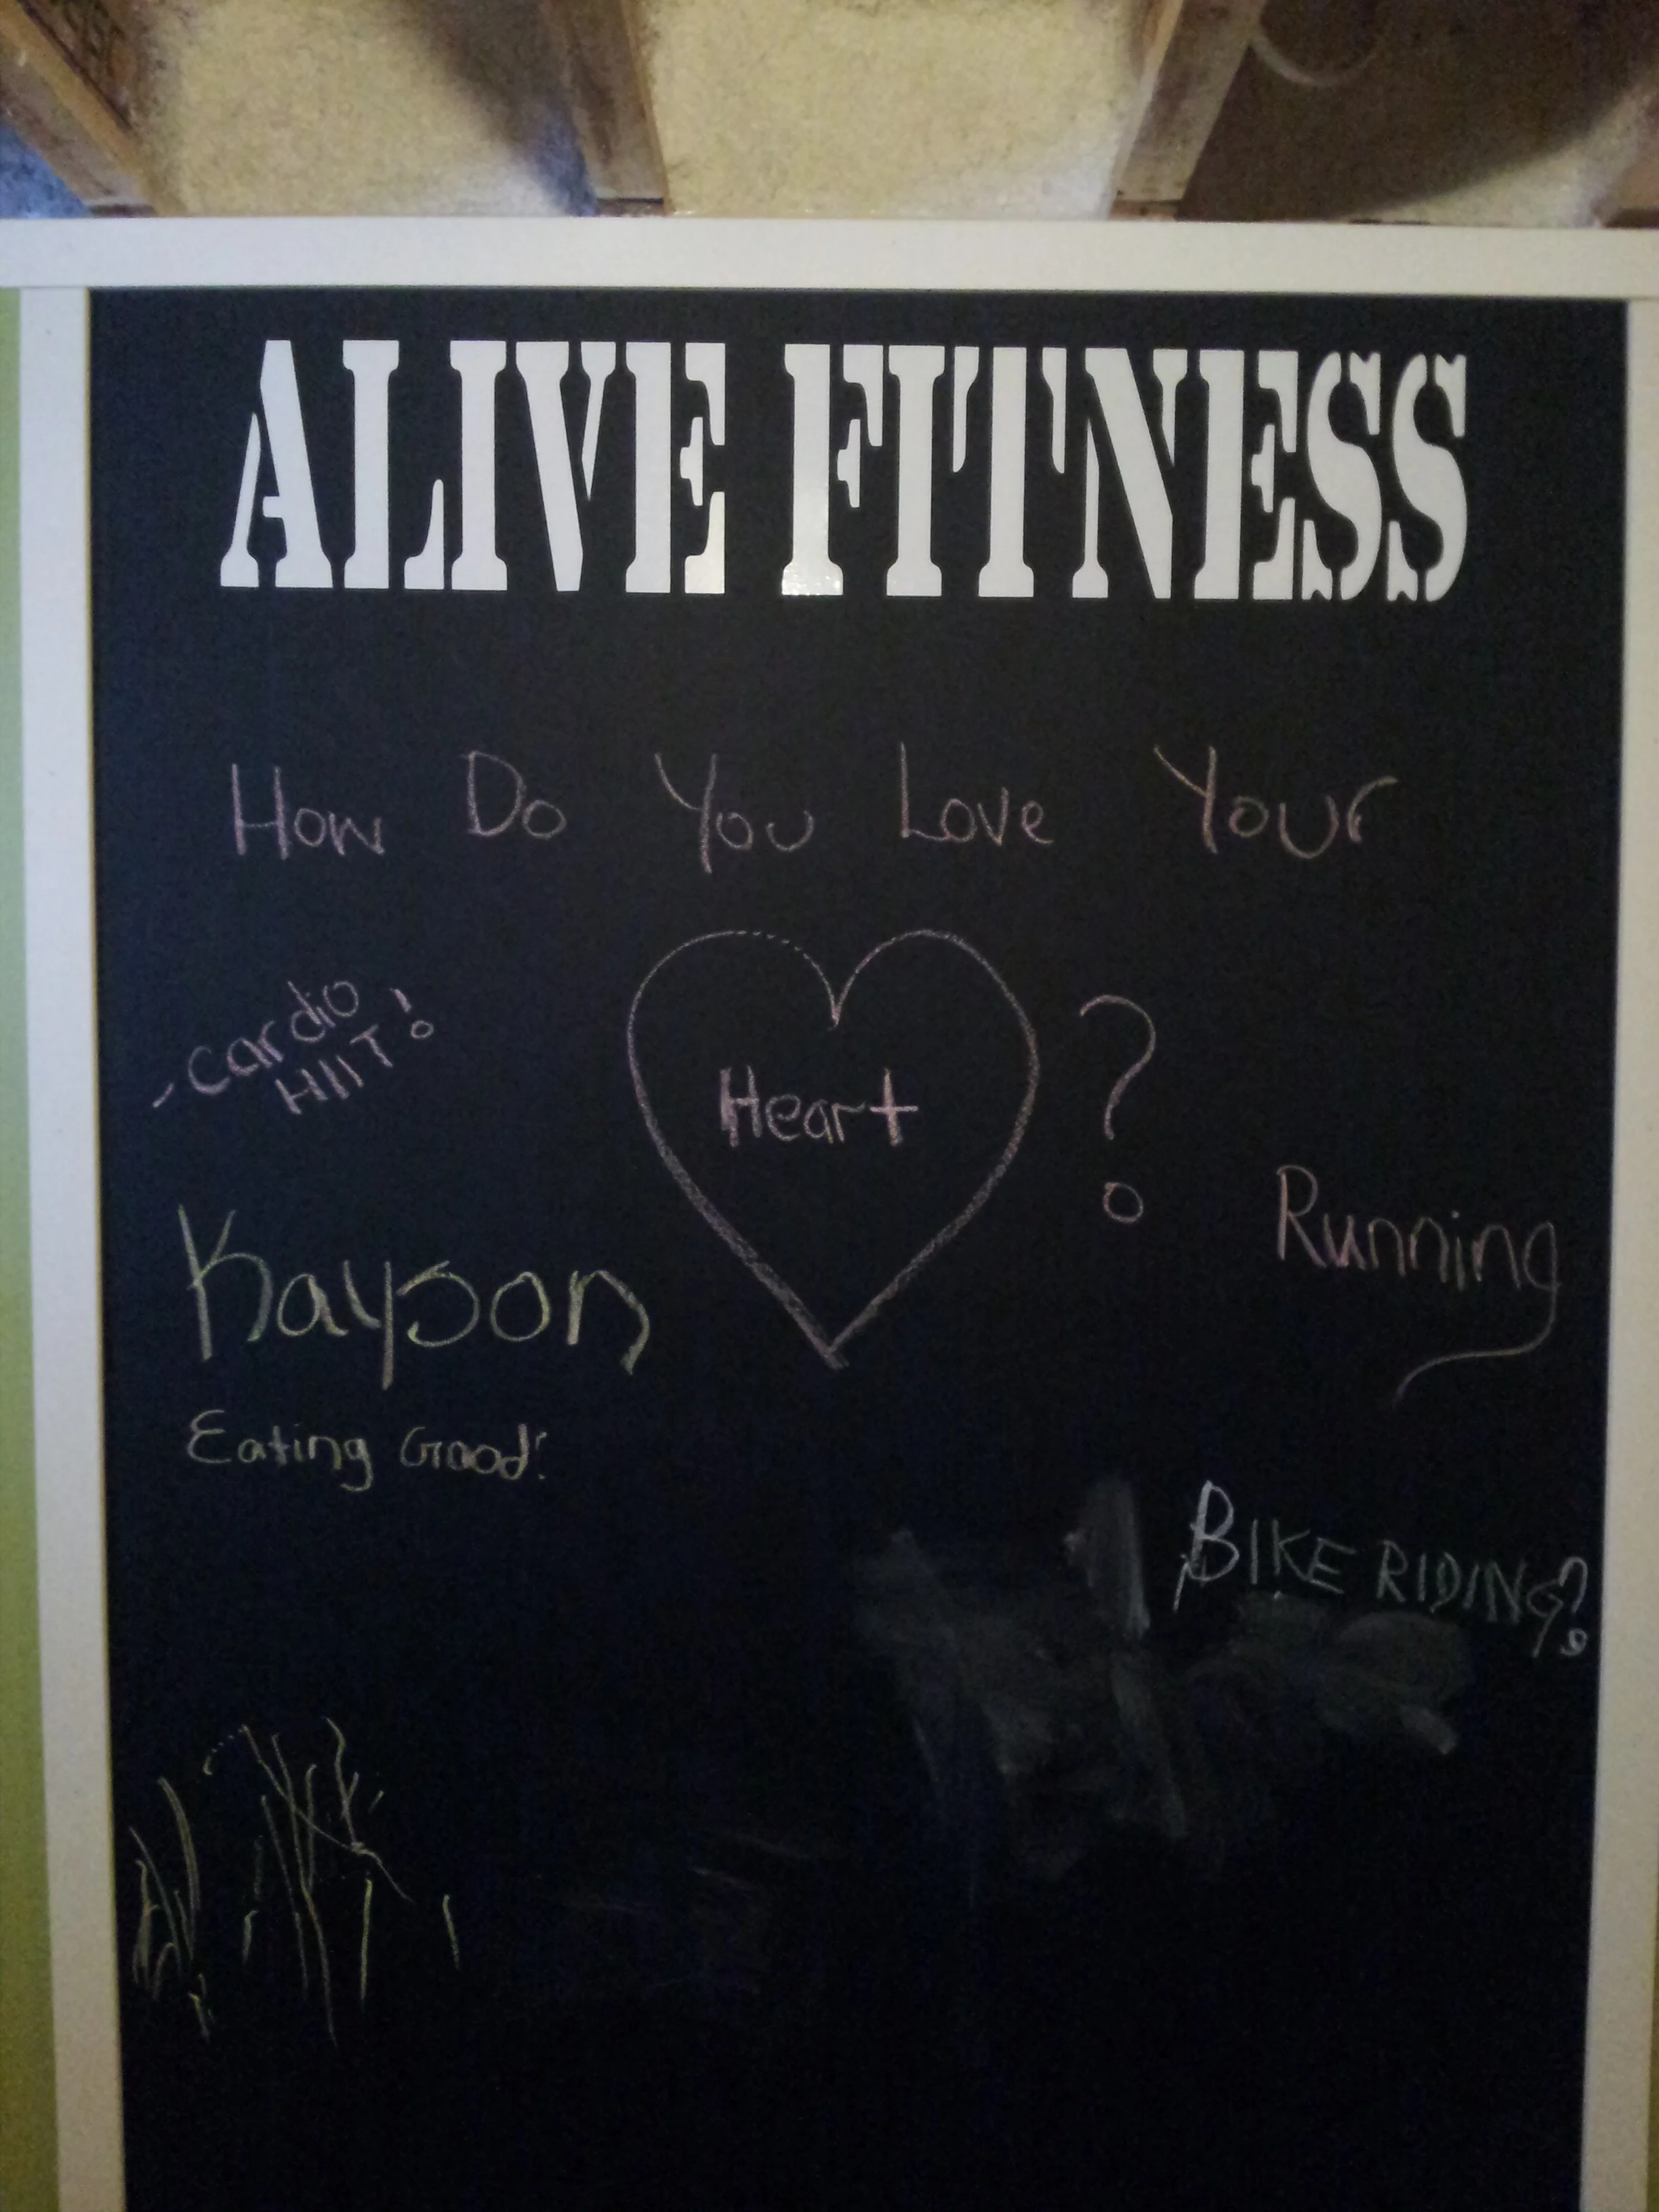 ALIVE FITNESS
How Do You Love Your
Heart ?
- Cardio
HIIT!
Running
Kayson
Eating Good!
BIKE RIDING?